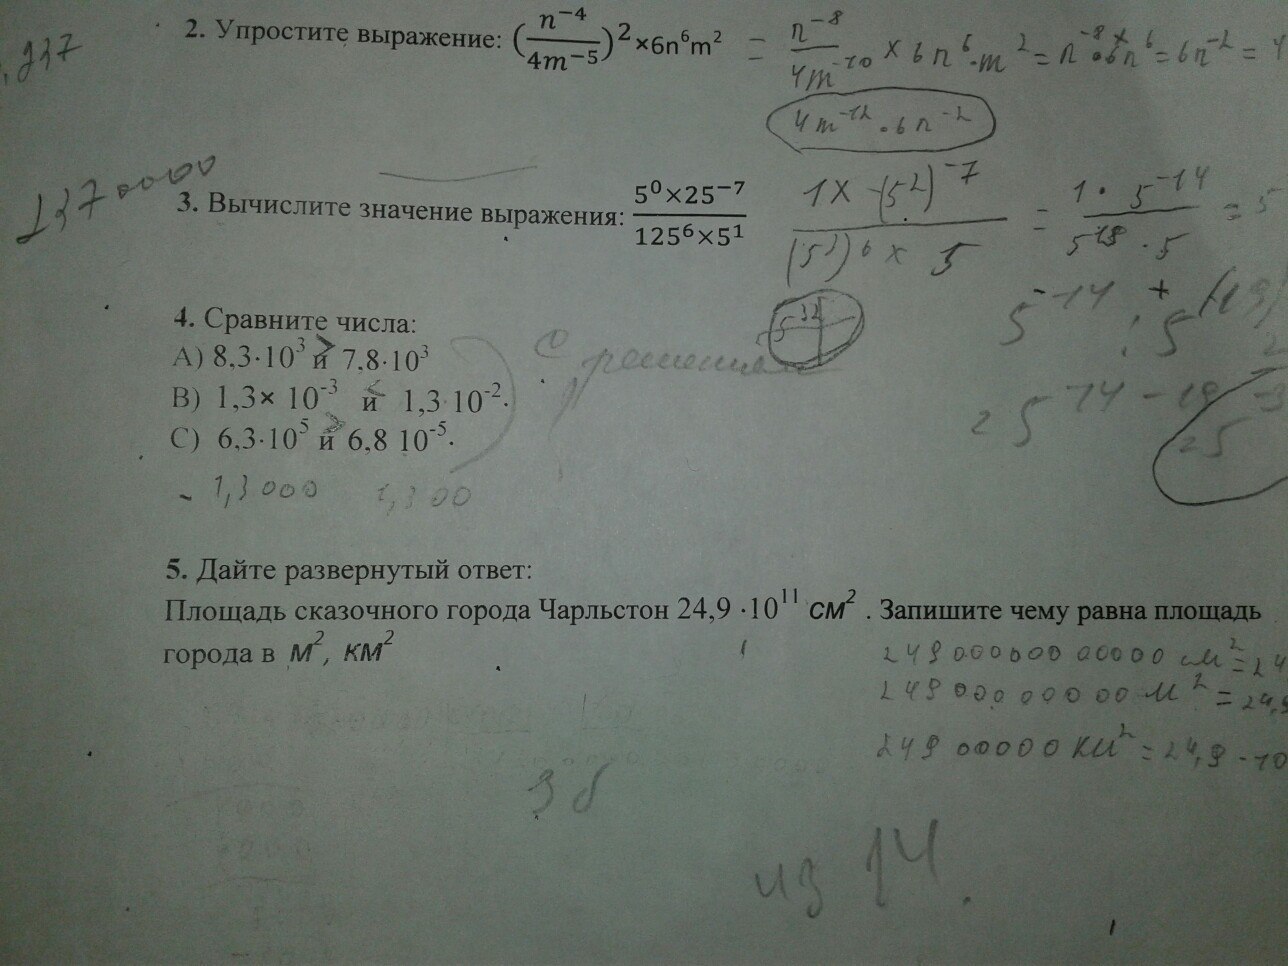 ,937
2. Упростите выражение: (n⁻⁴/4m⁻⁵)²×6n⁶m² = n⁻⁸/4m⁻¹⁰ × 6n⁶·m² = n⁻⁸·6n⁶ = 6n⁻² = 4
4m⁻¹²·6n⁻²
1370000
3. Вычислите значение выражения: 5⁰×25⁻⁷/125⁶×5¹ 1×(5²)⁻⁷/(5³)⁶×5 = 1·5⁻¹⁴/5¹⁸·5 = 5
5⁻¹⁴ : 5
4. Сравните числа:
А) 8,3·10³ и > 7.8·10³
с решением
В) 1,3× 10⁻³ и < 1,3 10⁻².
5⁻¹⁴⁻¹⁹
С) 6,3·10⁵ и > 6,8 10⁻⁵.
1,3000 1,300
5. Дайте развернутый ответ:
Площадь сказочного города Чарльстон 24,9 ·10¹¹ см² . Запишите чему равна площадь
города в м², км²
249000000 00000 см² = 24
249000 00000 м² = 24,9
249 00000 км² = 24,9·10
3 б
из 14.